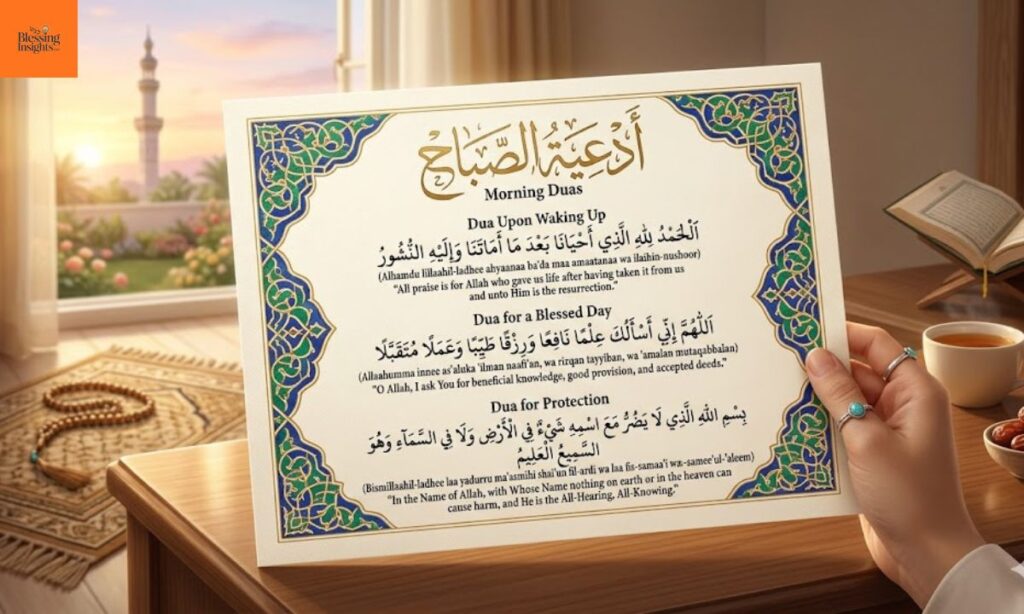 Blessing
Insights
أَدْعِيَةُ الصَّبَاح
Morning Duas
Dua Upon Waking Up
اَلْحَمْدُ لِلَّهِ الَّذِي أَحْيَانَا بَعْدَ مَا أَمَاتَنَا وَإِلَيْهِ النُّشُورُ
(Alhamdu lillaahil-ladhee ahyaanaa ba'da maa amaatanaa wa ilaihin-nushoor)
"All praise is for Allah who gave us life after having taken it from us
and unto Him is the resurrection."
Dua for a Blessed Day
اَللَّهُمَّ إِنِّي أَسْأَلُكَ عِلْمًا نَافِعًا وَرِزْقًا طَيِّبًا وَعَمَلًا مُتَقَبَّلًا
(Allaahumma innee as'aluka 'ilman naafi'an, wa rizqan tayyiban, wa 'amalan mutaqabbalan)
"O Allah, I ask You for beneficial knowledge, good provision, and accepted deeds."
Dua for Protection
بِسْمِ اللهِ الَّذِي لَا يَضُرُّ مَعَ اسْمِهِ شَيْءٌ فِي الْأَرْضِ وَلَا فِي السَّمَآءِ وَهُوَ
السَّمِيعُ الْعَلِيمُ
(Bismillaahil-ladhee laa yadurru ma'asmihi shai'un fil-ardi wa laa fis-samaa'i wa-samee'ul-'aleem)
"In the Name of Allah, with Whose Name nothing on earth or in the heaven can
cause harm, and He is the All-Hearing, All-Knowing."